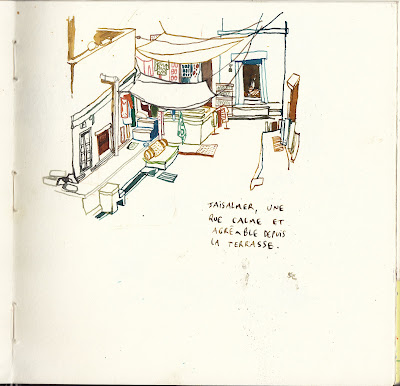 JAISALMER, UNE
RUE CALME ET
AGRÉABLE DEPUIS
LA TERRASSE.